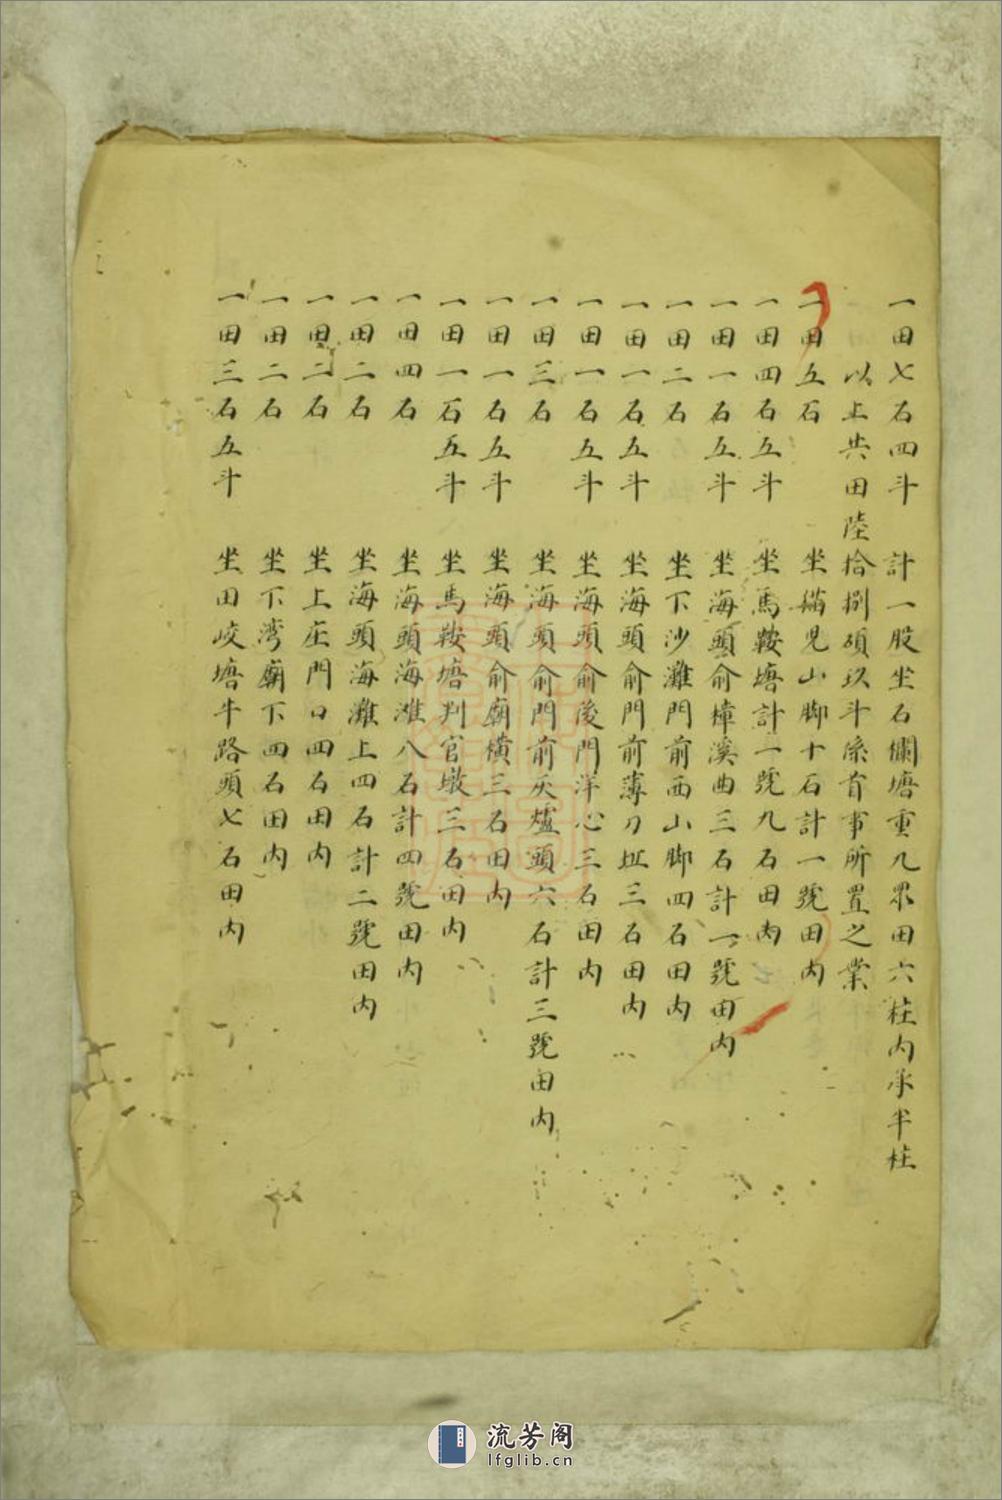 一田七石四斗 計一股坐石欄塘重九眾田六柱內承半柱
以上共田陸拾捌碩玖斗系首事所置之業
一田五石 坐貓兒山脚十石計一號田內
一田四石五斗 坐馬鞍塘計一號九石田內
一田一石五斗 坐海頭俞樟溪曲三石計一號田內
一田二石 坐下沙灘門前西山脚四石田內
一田一石五斗 坐海頭俞門前薄刀坵三石田內
一田一石五斗 坐海頭俞後門洋心三石田內
一田三石 坐海頭俞門前灰爐頭六石計三號田內
一田一石五斗 坐海頭俞廟橫三石田內
一田一石五斗 坐馬鞍塘判官墩三石田內
一田四石 坐海頭海灘八石計四號田內
一田二石 坐海頭海灘上四石計二號田內
一田二石 坐上庄門口四石田內
一田二石 坐下湾廟下四石田內
一田三石五斗 坐田岐塘牛路頭七石田內
流芳阁
lfglib.cn